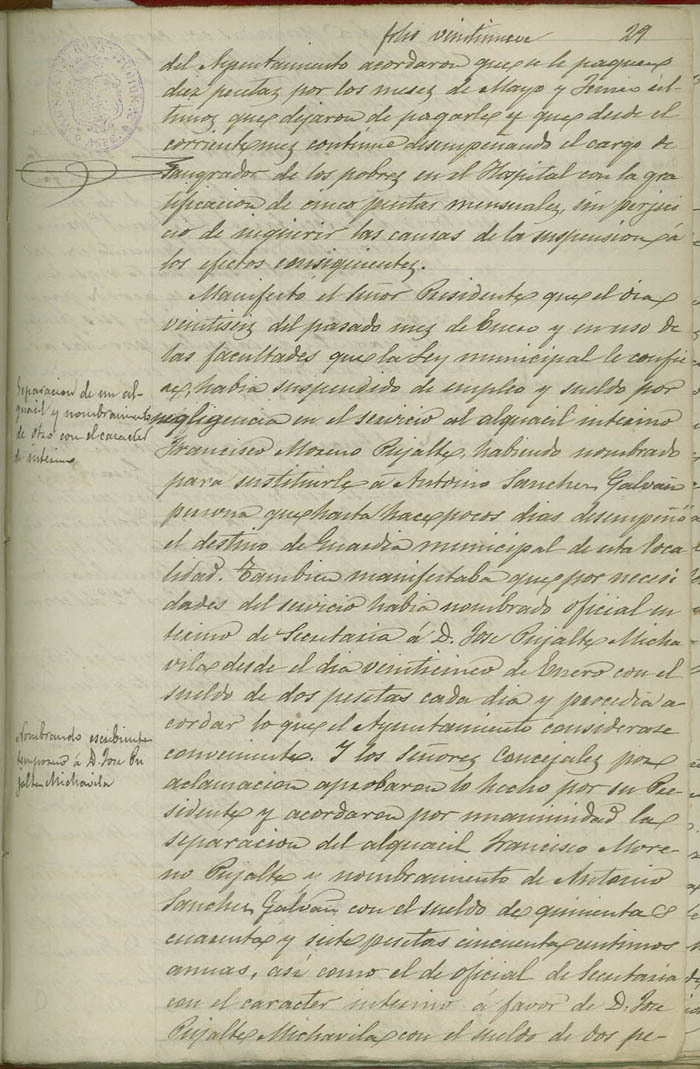 folio vintinueve 29
del Ayuntamiento acordaron que se le paguen
diez pesetas por los meses de Mayo y Junio úl-
timos que dejaron de pagarle y que desde el
corriente mes continue desempeñando el cargo de
Sangrador de los pobres en el Hospital con la gra
tificacion de cinco pesetas mensuales, sin perjui
cio de inquirir las causas de la suspension á
los efectos consiguientes.
Manifestó el Señor Presidente que el dia
veintiseis del pasado mes de Enero y en uso de
las facultades que la Ley municipal le confie
re, habia suspendido de empleo y sueldo por
negligencia en el servicio al alguacil interino
Francisco Moreno Pujalte, habiendo nombrado
para sustituirle á Antonio Sanchez Galvañ
persona que hasta hace pocos dias desempeñó
el destino de Guardia municipal de esta loca
lidad. Tambien manifestaba que por necesi
dades del servicio habia nombrado oficial in
terino de Secretaria á D. Jose Pujalte Micha
vila desde el dia veinticinco de Enero con el
sueldo de dos pesetas cada dia y procedia a-
cordar lo que el Ayuntamiento considerase
conveniente. Y los Señores Concejales por
aclamacion aprobaron lo hecho por su Pre-
sidente y acordaron por unanimidad la
separacion del alguacil Francisco More-
no Pujalte y nombramiento de Antonio
Sanchez Galvañ con el sueldo de quinientas
cuarenta y siete pesetas cincuenta centimos
anuas, asi como el de oficial de Secretaria
con el caracter interino á favor de D. Jose
Pujalte Michavila con el sueldo de dos pe-
Separacion de un al-
guacil y nombramiento
de otro con el caracter
de interino
Nombrando escribiente
temporero á D. Jose Pu
jalte Michavila